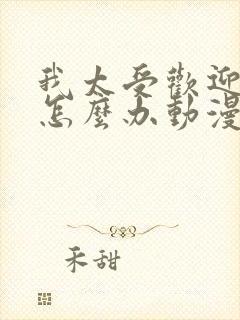 我太受歡迎
怎麼办動漫
禾甜